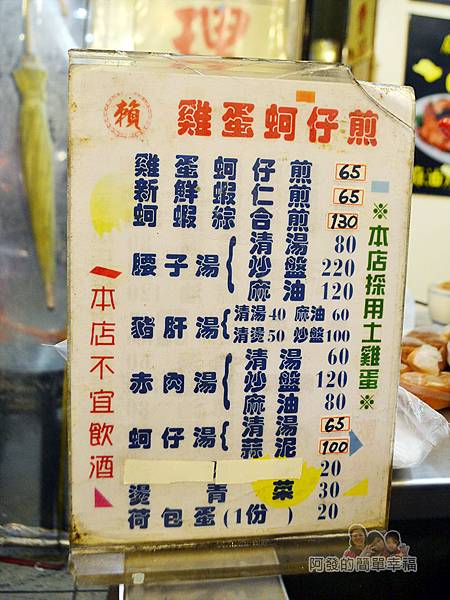 賴 雞蛋蚵仔煎
雞蛋蚵仔煎 65
新鮮蝦仁煎 65
蚵蝦綜合煎 130
腰子湯{清湯 80
炒盤 220
麻油 120
豬肝湯{清湯40 麻油 60
清燙50 炒盤100
赤肉湯{清湯 60
炒盤 120
麻油 80
蚵仔湯{清湯 65
蒜泥 100
20
燙青菜 30
荷包蛋(1份) 20
本店不宜飲酒
※本店採用土雞蛋※
阿發的簡單幸福